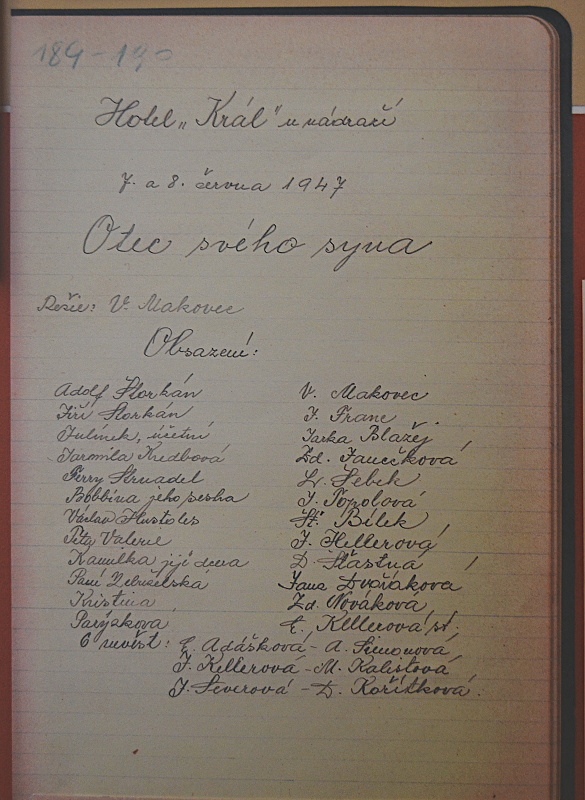 189-190
Hotel „Král" u nádraží
7. a 8. června 1947
Otec svého syna
Režie: V. Makovec
Obsazení:
Adolf Štorkán V. Makovec
Jiří Štorkán J. Franc
Julínek, účetní Jarka Blažej
Jaromila Knedbová Zd. Janečková
Ferry Strnadel L. Šebek
Bobbina jeho sestra J. Topolová
Václav Hustoles Št. Bílek
Teta Valerie J. Hellerová
Kamilka její dcera D. Šťastná
Paní Jana Dvořáková
Kristina Zd. Nováková
Paryjaková E. Kellerová st.
6 nevěst: E. Adášková - A. Šimonová
J. Kellerová - M. Kalistová
J. Severová - D. Kořítková.